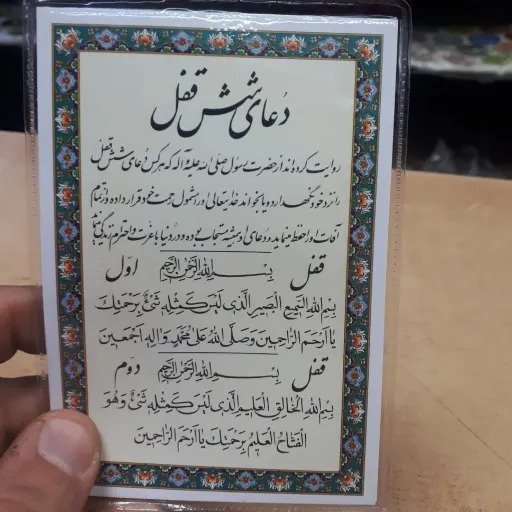 دعای شش قفل
روایت کرده‌اند از حضرت رسول صلی الله علیه و آله که هر کس دعای شش قفل
را نزد خود نگهدارد و یا بخواند خدایتعالی او را مشمول رحمت خود قرار داده و از تمام
آفات او را حفظ مینماید و دعای او همیشه مستجاب بوده و در دنیا با عزت و احترام زندگی نماید
قفل بِسْمِ اللهِ الرَّحْمنِ الرَّحیمِ اول
بِسْمِ اللهِ السَّمیعِ الْبَصیرِ الَّذی لَیْسَ کَمِثْلِهِ شَیْءٌ بِرَحْمَتِکَ
یا اَرْحَمَ الرّاحِمینَ وَ صَلَّی اللهُ عَلی مُحَمَّدٍ وَ الِهِ اَجْمَعینَ
قفل بِسْمِ اللهِ الرَّحْمنِ الرَّحیمِ دوم
بِسْمِ اللهِ الْخالِقِ الْعَلیمِ الَّذی لَیْسَ کَمِثْلِهِ شَیْءٌ وَ هُوَ
الْفَتّاحُ الْعَلیمُ بِرَحْمَتِکَ یا اَرْحَمَ الرّاحِمینَ